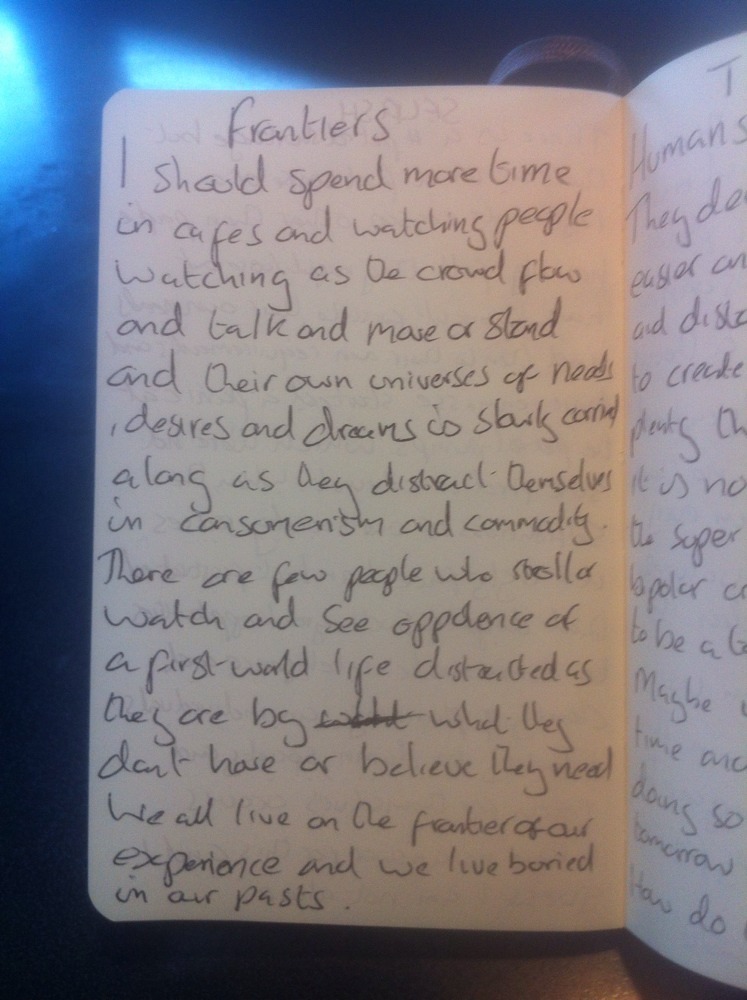 Frontiers
I should spend more time
in cafes and watching people
watching as the crowd flow
and talk and move or stand
and their own universes of needs
, desires and dreams is slowly carried
along as they distract themselves
in consumerism and commodity.
There are few people who stroll or
watch and see oppulence of
a first-world life distracted as
they are by what they
don't have or believe they need
We all live on the frontier of our
experience and we live buried
in our pasts.
T
Humans
They de
easier an
and dist
to create
plenty th
it is no
the super
bipolar
to be a
Maybe
time and
doing so
tomorrow
How do